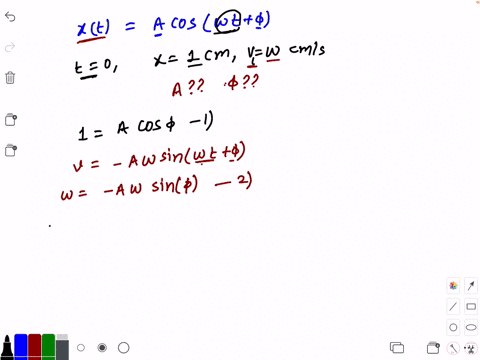 x(t) = A cos(ωt+ϕ)
t=0, x=1 cm, v=ω cm/s
A?? ϕ??
1 = A cosϕ -1)
v = -Aω sin(ωt+ϕ)
ω = -Aω sin(ϕ) — 2)